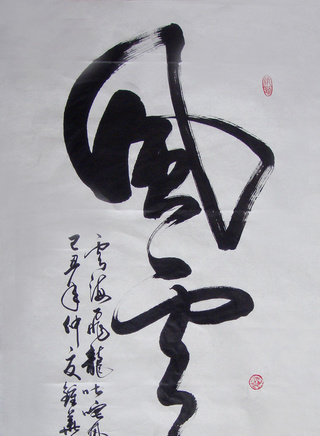 風雲
雲海飛龍吐雲風
己丑年仲夏鍾華